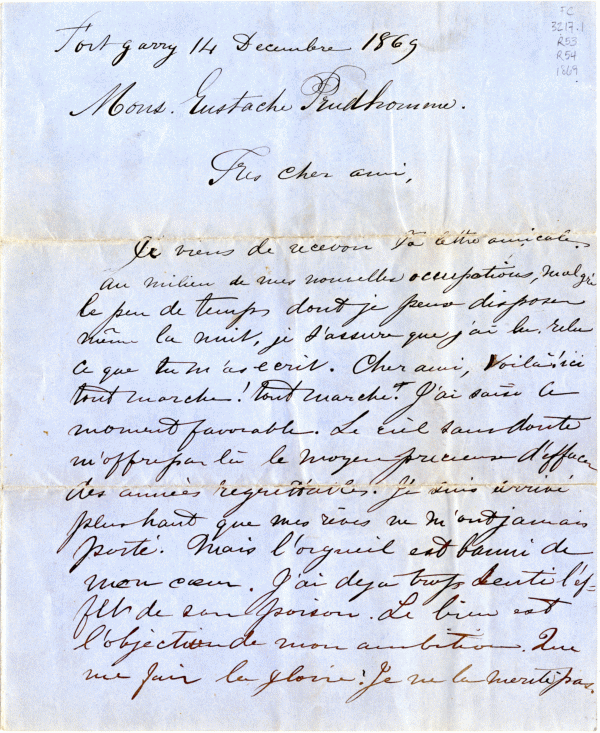 FC
3217.1
R53
R54
1869
Fort garry 14 Decembre 1869
Mons. Eustache Prudhomme.
Tres cher ami,
Je viens de recevoir Ta lettre amicale.
au milieu de mes nouvelles occupations, malgré
le peu de temps dont je peux disposer
même la nuit, je t'assure que j'ai lu. relu
ce que tu m'as ecrit. Cher ami, Voilà! ici
tout marche! tout marche! J'ai saisi le
moment favorable. Le ciel sans doute
m'offre par là le moyen precieux d'effacer
des années regrettables. Je suis arrivé
plus haut que mes rêves ne m'ont jamais
porté. Mais l'orgueil est banni de
mon cœur. J'ai deja trop senti l'ef-
fet de son poison. Le bien est
l'objection de mon ambition. Que
me fair la gloire! Je ne la merite pas.